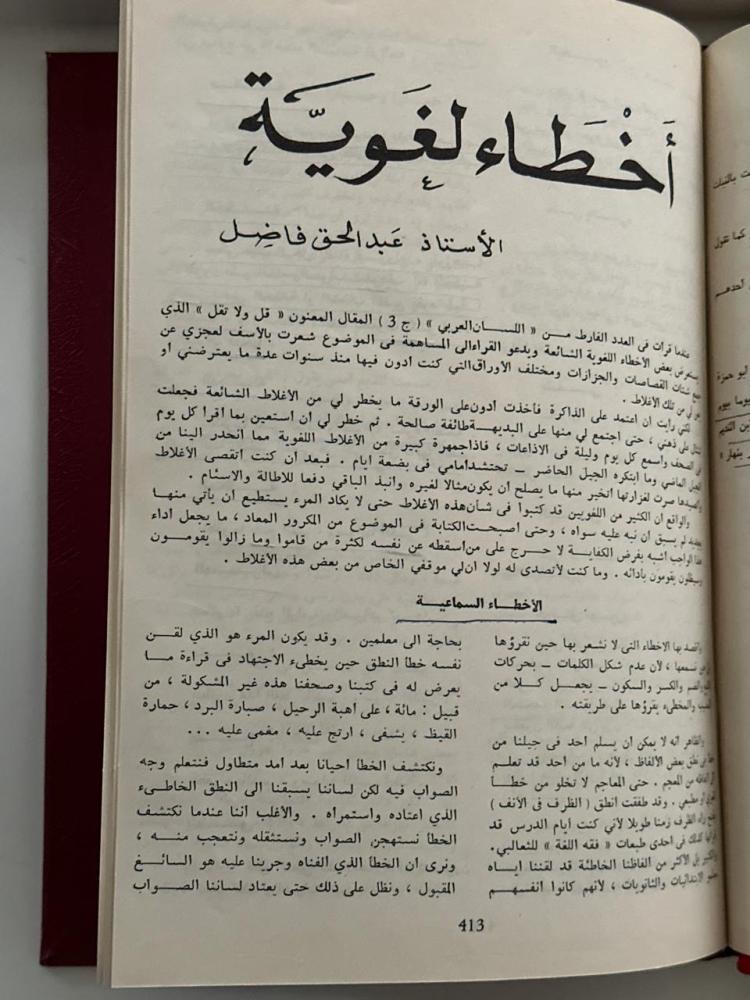 أَخْطَاء لغَويَّة
الأستاذ عبدالحق فاضل
عندما قرات فى العدد الفارط مـن « اللسـان العربي » ( ج 3 ) المقال المعنون « قل ولا تقل » الذي
يستعرض بعض الأخطاء اللغوية الشائعة ويدعو القراءالى المساهمة فى الموضوع شعرت بالأسف لعجزي عن
شتات القصاصات والجزازات ومختلف الأوراقالتي كنت ادون فيها منذ سنوات عدة ما يعترضني او
لي من تلك الأغلاط .
لكني رأيت ان اعتمد على الذاكرة فأخذت ادونعلى الورقة ما يخطر لي من الأغلاط الشائعة فجعلت
تنثال على ذهني ، حتى اجتمع لي منها على البديهـةطائفة صالحة . ثم خطر لي ان استعين بما اقرا كل يوم
فى الصحف واسمع كل يوم وليلة فى الاذاعات ، فاذاجمهرة كبيرة من الأغلاط اللغوية مما انحدر الينا من
الجيل الماضي وما ابتكره الجيل الحاضر ــ تحتشدامامي فى بضعة ايام . فبعد ان كنت اتقصى الأغلاط
واتصيدها صرت لغزارتها اتخير منها ما يصلح ان يكونمثالا لغيره وانبذ الباقي دفعا للاطالة والاسئـام .
والواقع أن الكثير من اللغويين قد كتبوا فى شأنهذه الأغلاط حتى لا يكاد المرء يستطيع ان يأتي منها
بجديد لم يسبق ان نبه عليه سواه ، وحتى اصبحـتالكتابة فى الموضوع من المكرور المعاد ، ما يجعل اداء
هذا الواجب اشبه بفرض الكفايـة لا حرج على مناسقطه عن نفسه لكثرة من قاموا وما زالوا يقومـون
وسيظلون يقومون بادائه . وما كنت لأتصدى له لولا انلي موقفي الخاص من بعض هذه الأغلاط .
الأخطـاء السماعيـة
واقصد بها الاخطاء التى لا نشعر بها حين نقرؤها
حين نسمعها ، لأن عدم شكل الكلمات ــ بحركات
والضم والكسر والسكون ــ يجعـل كـلا من
المصيب والمخطىء يقرؤها على طريقته .
والظاهر انه لا يمكن أن يسلم احد فى جيلنا من
خطأ فى نطق بعض الألفاظ ، لأنه ما من احد قد تعلـم
كل الفاظه من المعجم . حتى المعاجم لا تخلو من خطـأ
او مطبعي . وقد طفقت انطق ( الظرف فى الأنف )
الظرف زمنا طويلا لأني كنت أيام الدرس قد
قراتها كذلك فى احدى طبعات « فقه اللغة » للثعالبي.
والكثير بل الأكثر من الفاظنا الخاطئة قد لقننا ايـاه
معلمو الابتدائيات والثانويات ، لأنهم كانوا انفسهـم
بحاجة الى معلمين . وقد يكون المرء هو الذي لقـن
نفسه خطأ النطق حين يخطىء الاجتهاد فى قراءة مـا
يعرض له فى كتبنا وصحفنا هذه غير المشكولة ، من
قبيل : مائة ، على أهبة الرحيل ، صبارة البرد ، حمارة
القيظ ، يشفى ، ارتج عليه ، مغمى عليه ...
ونكتشف الخطأ أحيانا بعد أمد متطاول فنتعلم وجه
الصواب فيه لكن لساننا يسبقنا الى النطق الخاطـىء
الذي اعتاده واستمراه . والأغلب اننا عندما نكتشف
الخطأ نستهجن الصواب ونستثقله ونتعجب منـه ،
ونرى ان الخطأ الذي الفناه وجرينا عليه هو السائـغ
المقبول ، ونظل على ذلك حتى يعتاد لساننا الصـواب
413